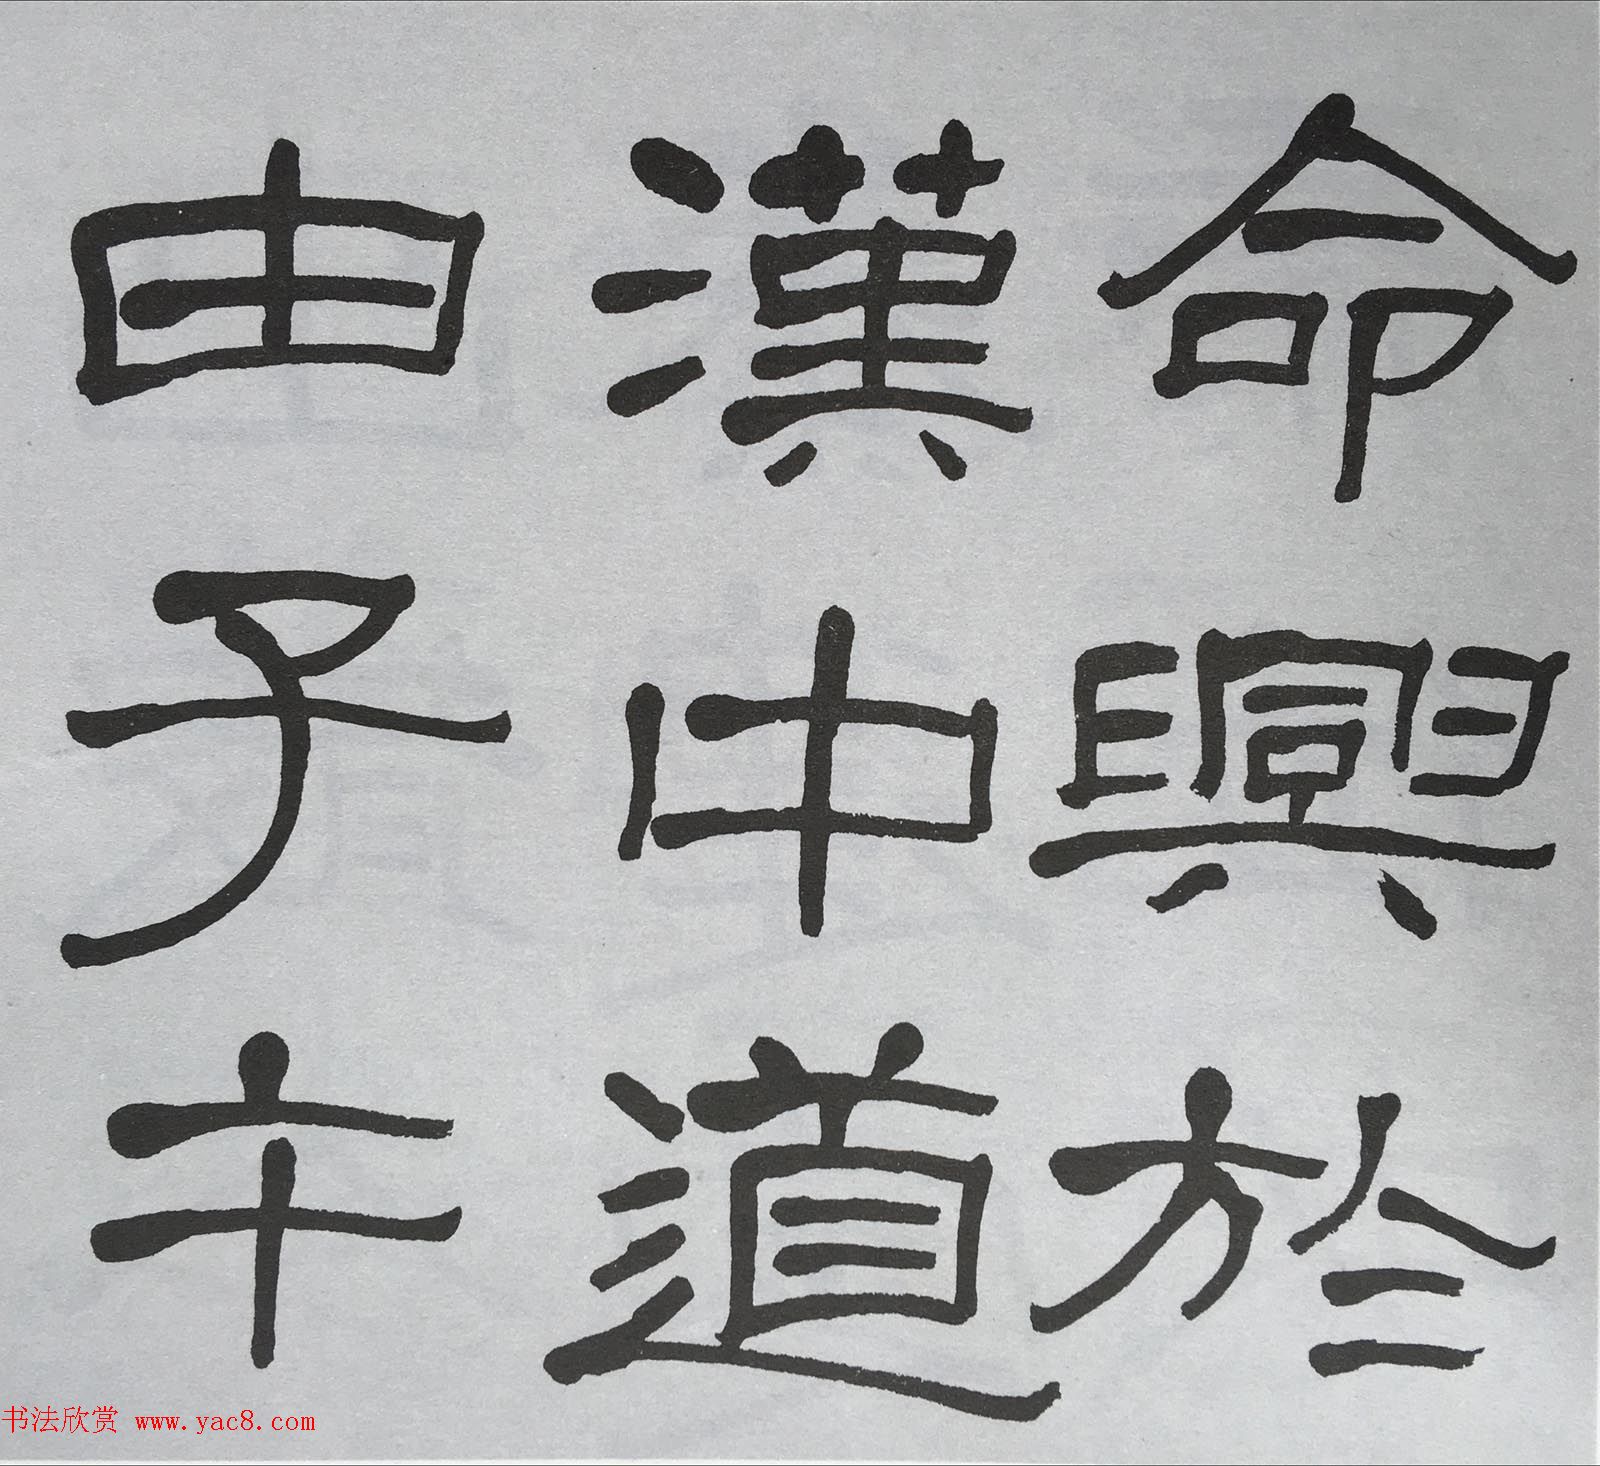 命興於
漢中道
由子午
书法欣赏 www.yac8.com